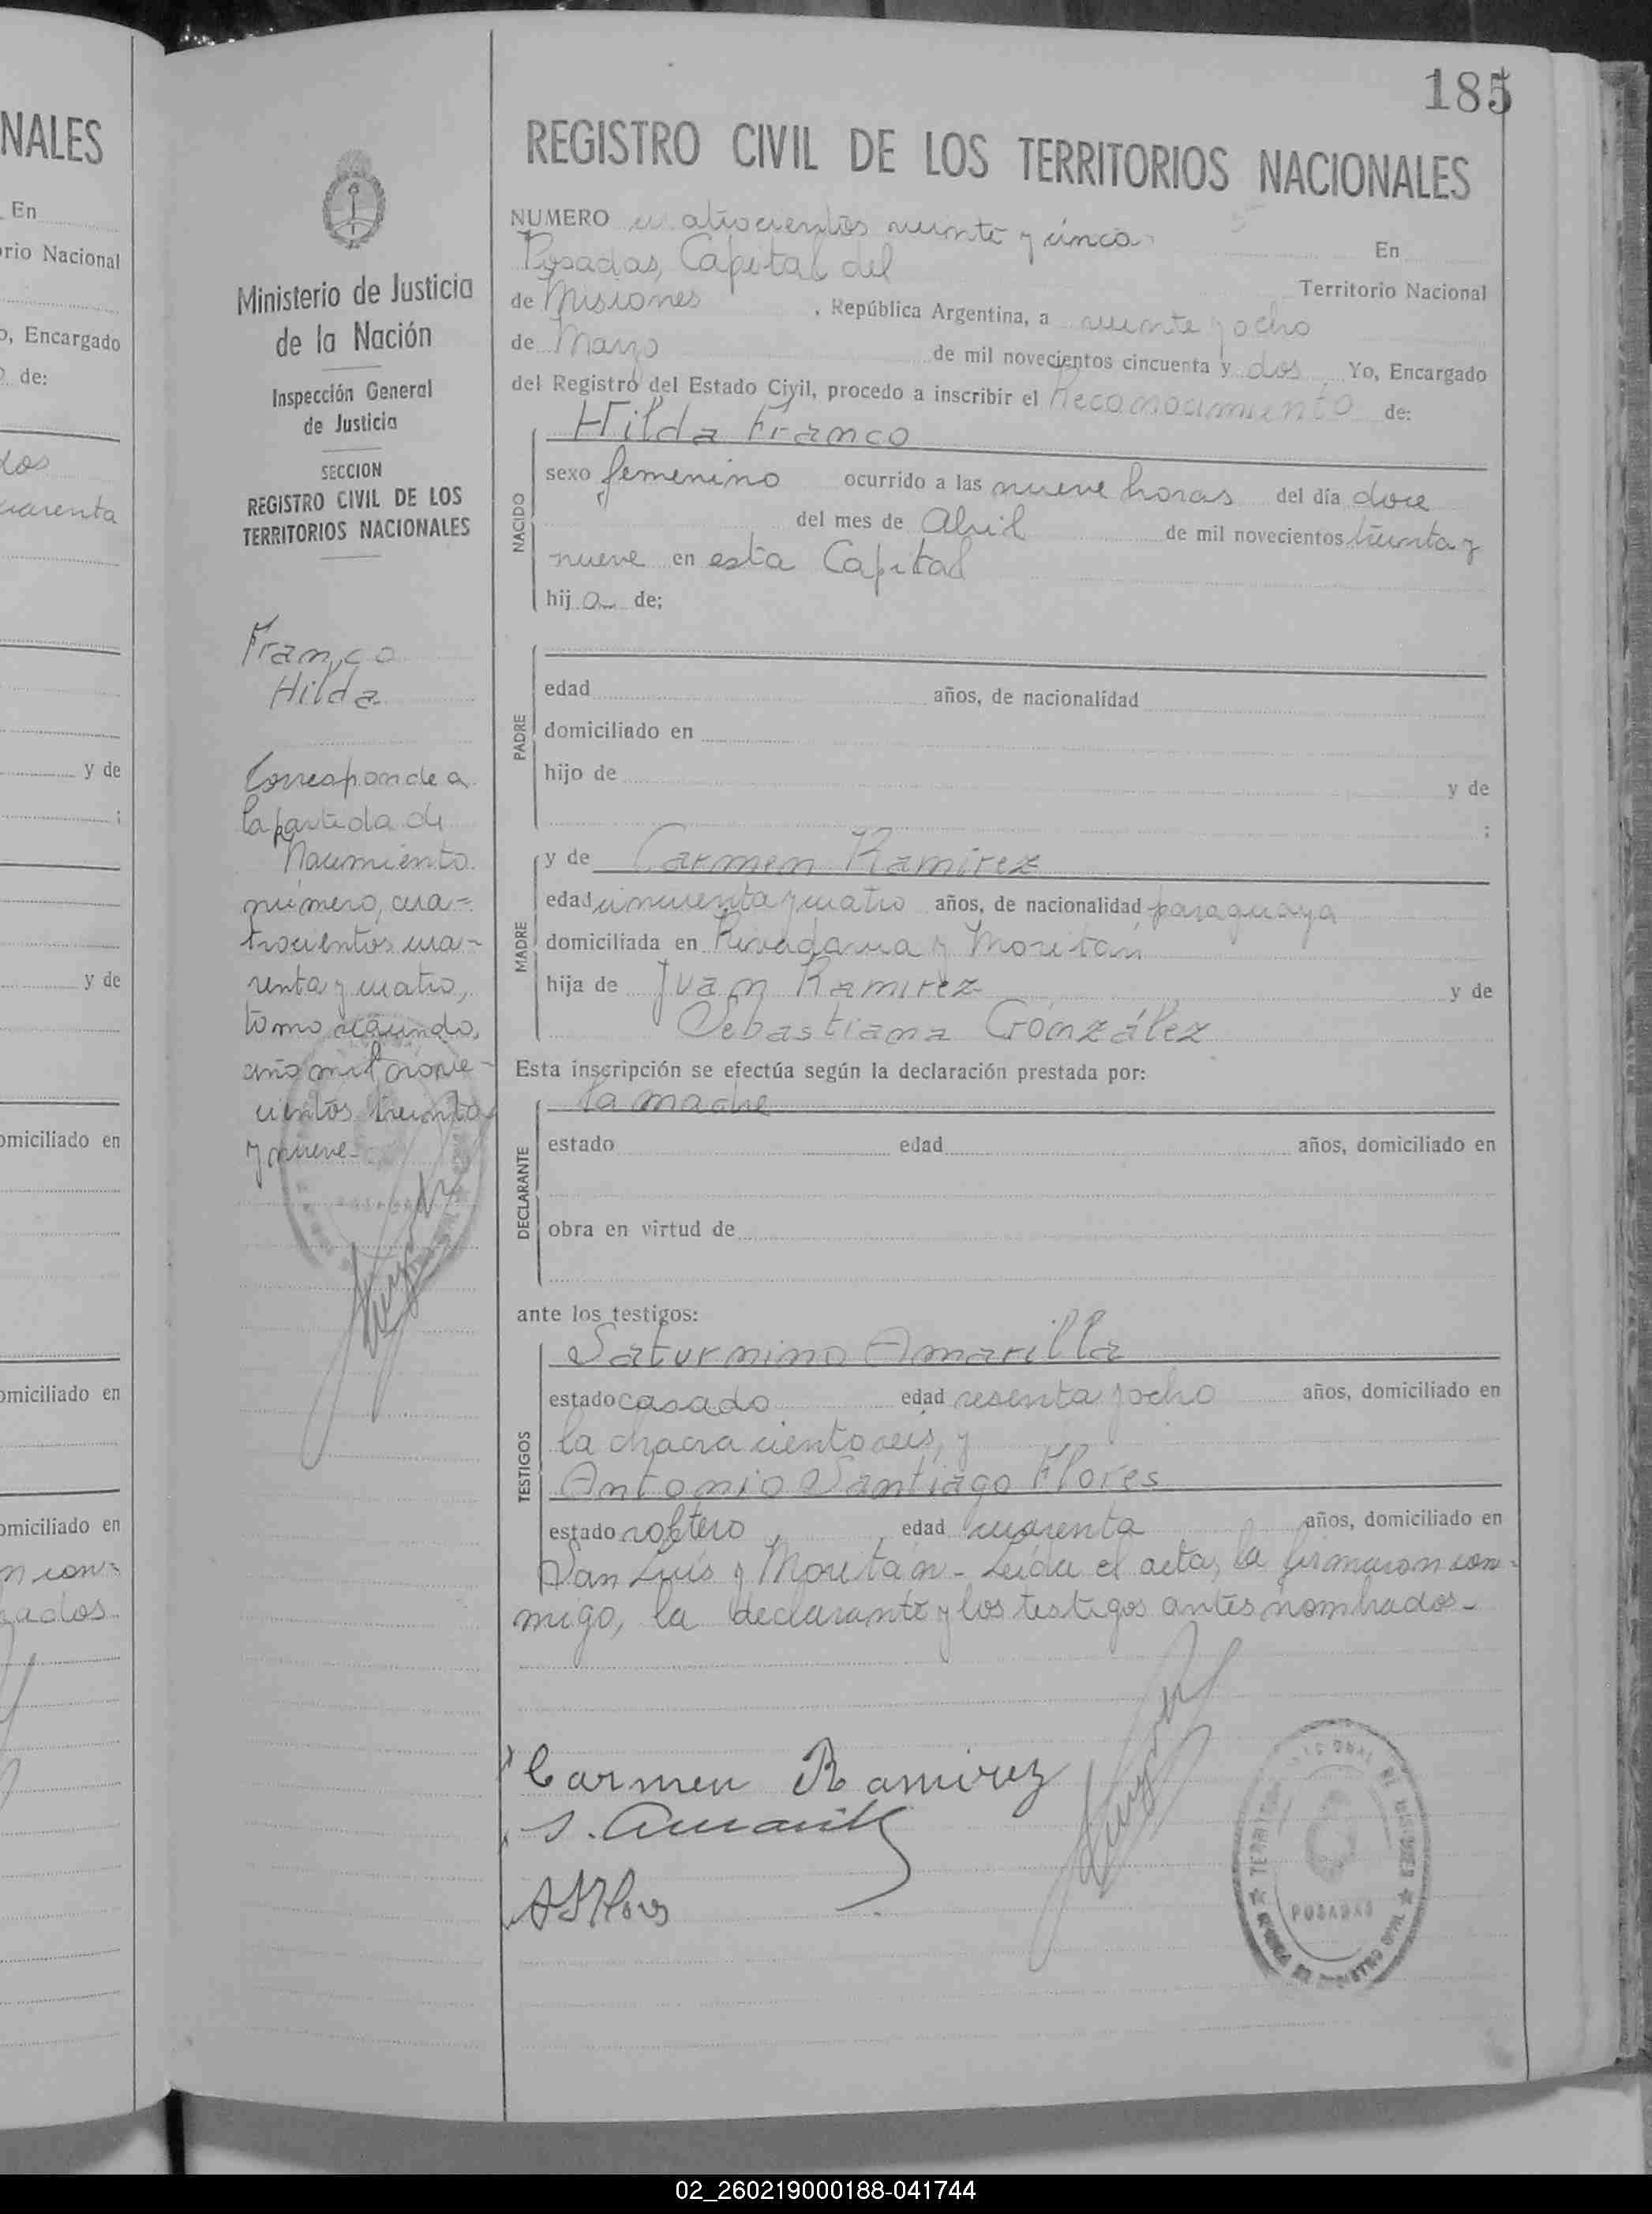 NALES
En
rio Nacional
o, Encargado
de:
dos
uarenta
y de
;
y de
omiciliado en
omiciliado en
omiciliado en
n con=
rados
Ministerio de Justicia
de la Nación
Inspección General
de Justicia
SECCION
REGISTRO CIVIL DE LOS
TERRITORIOS NACIONALES
Franco
Hilda
Corresponde a
la partida de
Nacimiento
número, cua=
trocientos cua-
renta y cuatro,
tomo segundo,
año mil nove-
cientos treinta
y nueve-
185
REGISTRO CIVIL DE LOS TERRITORIOS NACIONALES
NUMERO cuatrocientos veinte y cinco En
Posadas, Capital del Territorio Nacional
de Misiones , República Argentina, a veinte y ocho
de Marzo de mil novecientos cincuenta y dos Yo, Encargado
del Registro del Estado Civil, procedo a inscribir el Reconocimiento de:
Hilda Franco
NACIDO
sexo femenino ocurrido a las nueve horas del día doce
del mes de Abril de mil novecientos treinta y
nueve en esta Capital
hij a de;
PADRE
edad años, de nacionalidad
domiciliado en
hijo de y de
;
MADRE
y de Carmen Ramirez
edad cincuenta y cuatro años, de nacionalidad paraguaya
domiciliada en Rivadavia y Moritán
hija de Juan Ramirez y de
Sebastiana González
Esta inscripción se efectúa según la declaración prestada por:
la madre
DECLARANTE
estado edad años, domiciliado en
obra en virtud de
ante los testigos:
TESTIGOS
Saturnino Amarilla
estado casado edad sesenta y ocho años, domiciliado en
la chacra ciento seis, y
Antonio Santiago Flores
estado soltero, edad cuarenta años, domiciliado en
San Luis y Moritán - Leída el acta, la firmaron con-
migo, la declarante y los testigos antes nombrados-
Carmen Ramirez
S. Amarilla
A S Flores
POSADAS
02_260219000188-041744